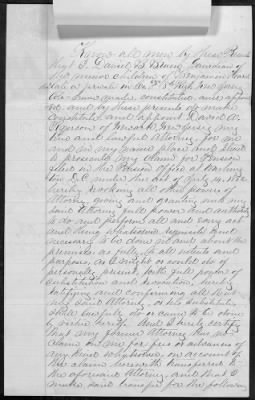 Know all men by these Presents
that I, Daniel B. Bruen Guardian of
the minor children of Benjamin
late a private in Co. " " Regt New Jersey
Vols have made constituted and appoint
ed, and by these presents do make
constitute and appoint David A.
Ryerson of Newark New Jersey my
true and lawful Attorney for me
and in my name place and stead
to prosecute my claim for Pension
filed in the Pension Office at Washing
ton D.C. under the Act of July 14 1862
hereby revoking all other powers of
Attorney giving and granting unto my
said Attorney full power and authority
to do and perform all and every act
and thing whatsoever requisite and
necessary to be done in and about the
premises as fully to all intents and
purposes, as I might or could do if
personally present, with full power of
substitution and revocation, hereby
ratifying and confirming all that
my said Attorney or his substitute
shall lawfully do or cause to be done
by virtue hereof. And I hereby certify
that my former Attorney has no
claim on me for fees or advances of
any kind whatsoever on account of
the claim herewith transferred to
the aforesaid Attorney and that I
make said transfer for the following